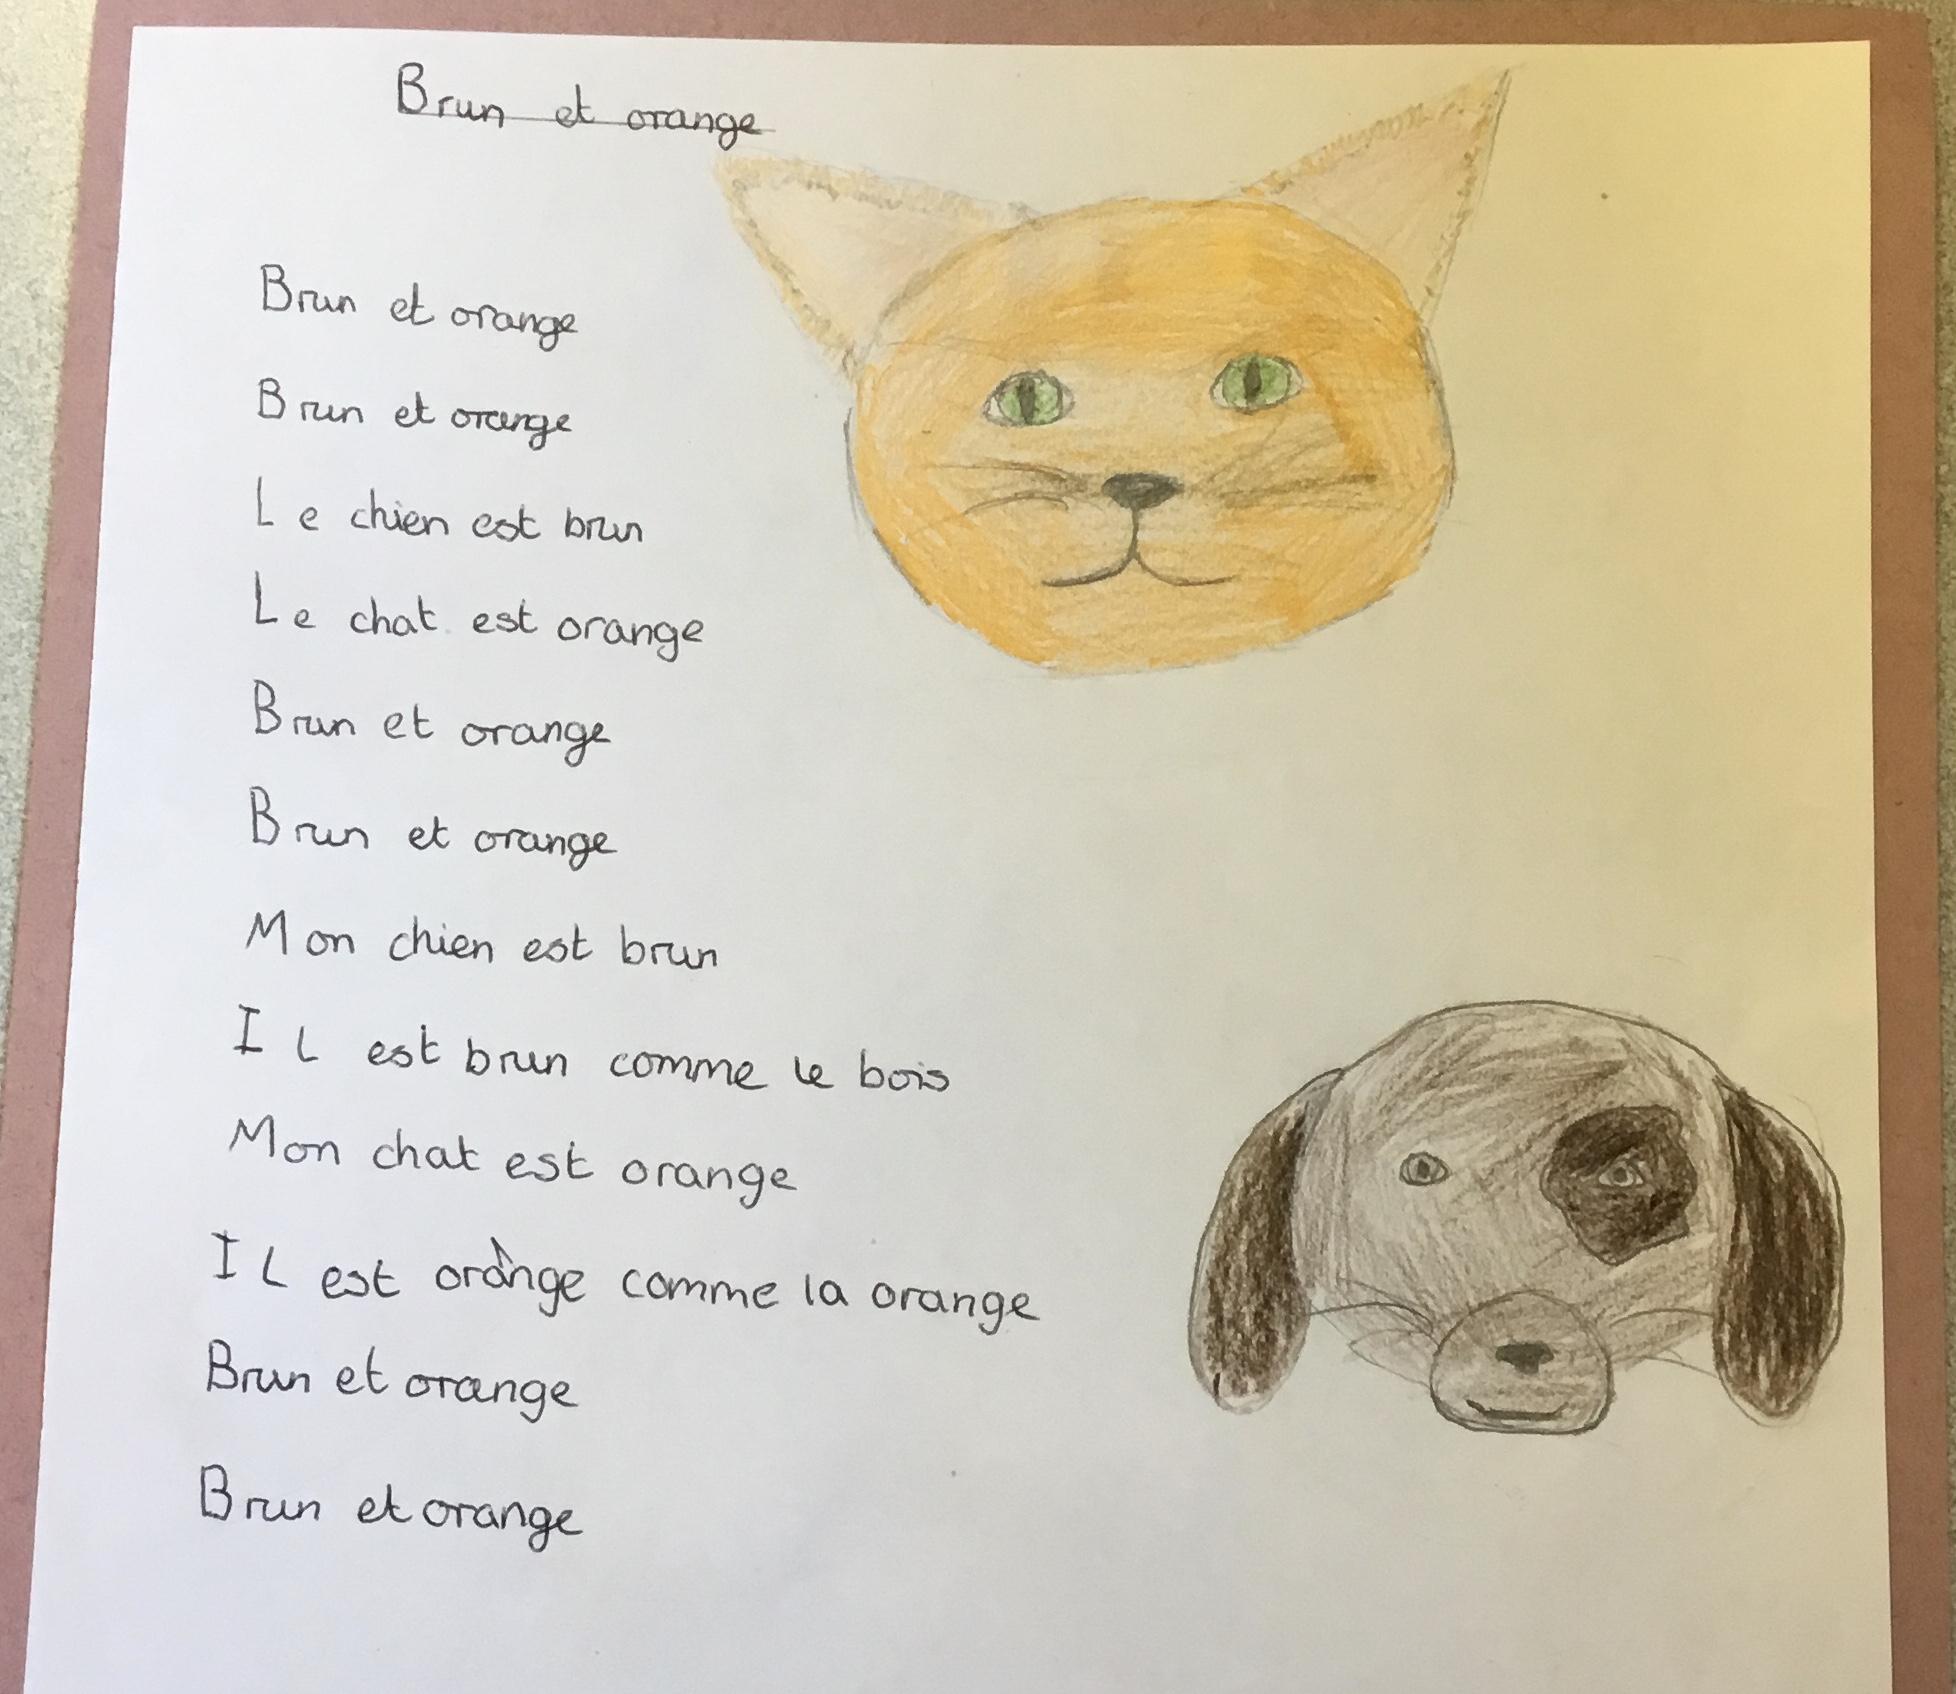 Brun et orange
Brun et orange
Brun et orange
Le chien est brun
Le chat est orange
Brun et orange
Brun et orange
Mon chien est brun
Il est brun comme le bois
Mon chat est orange
Il est orange comme la orange
Brun et orange
Brun et orange